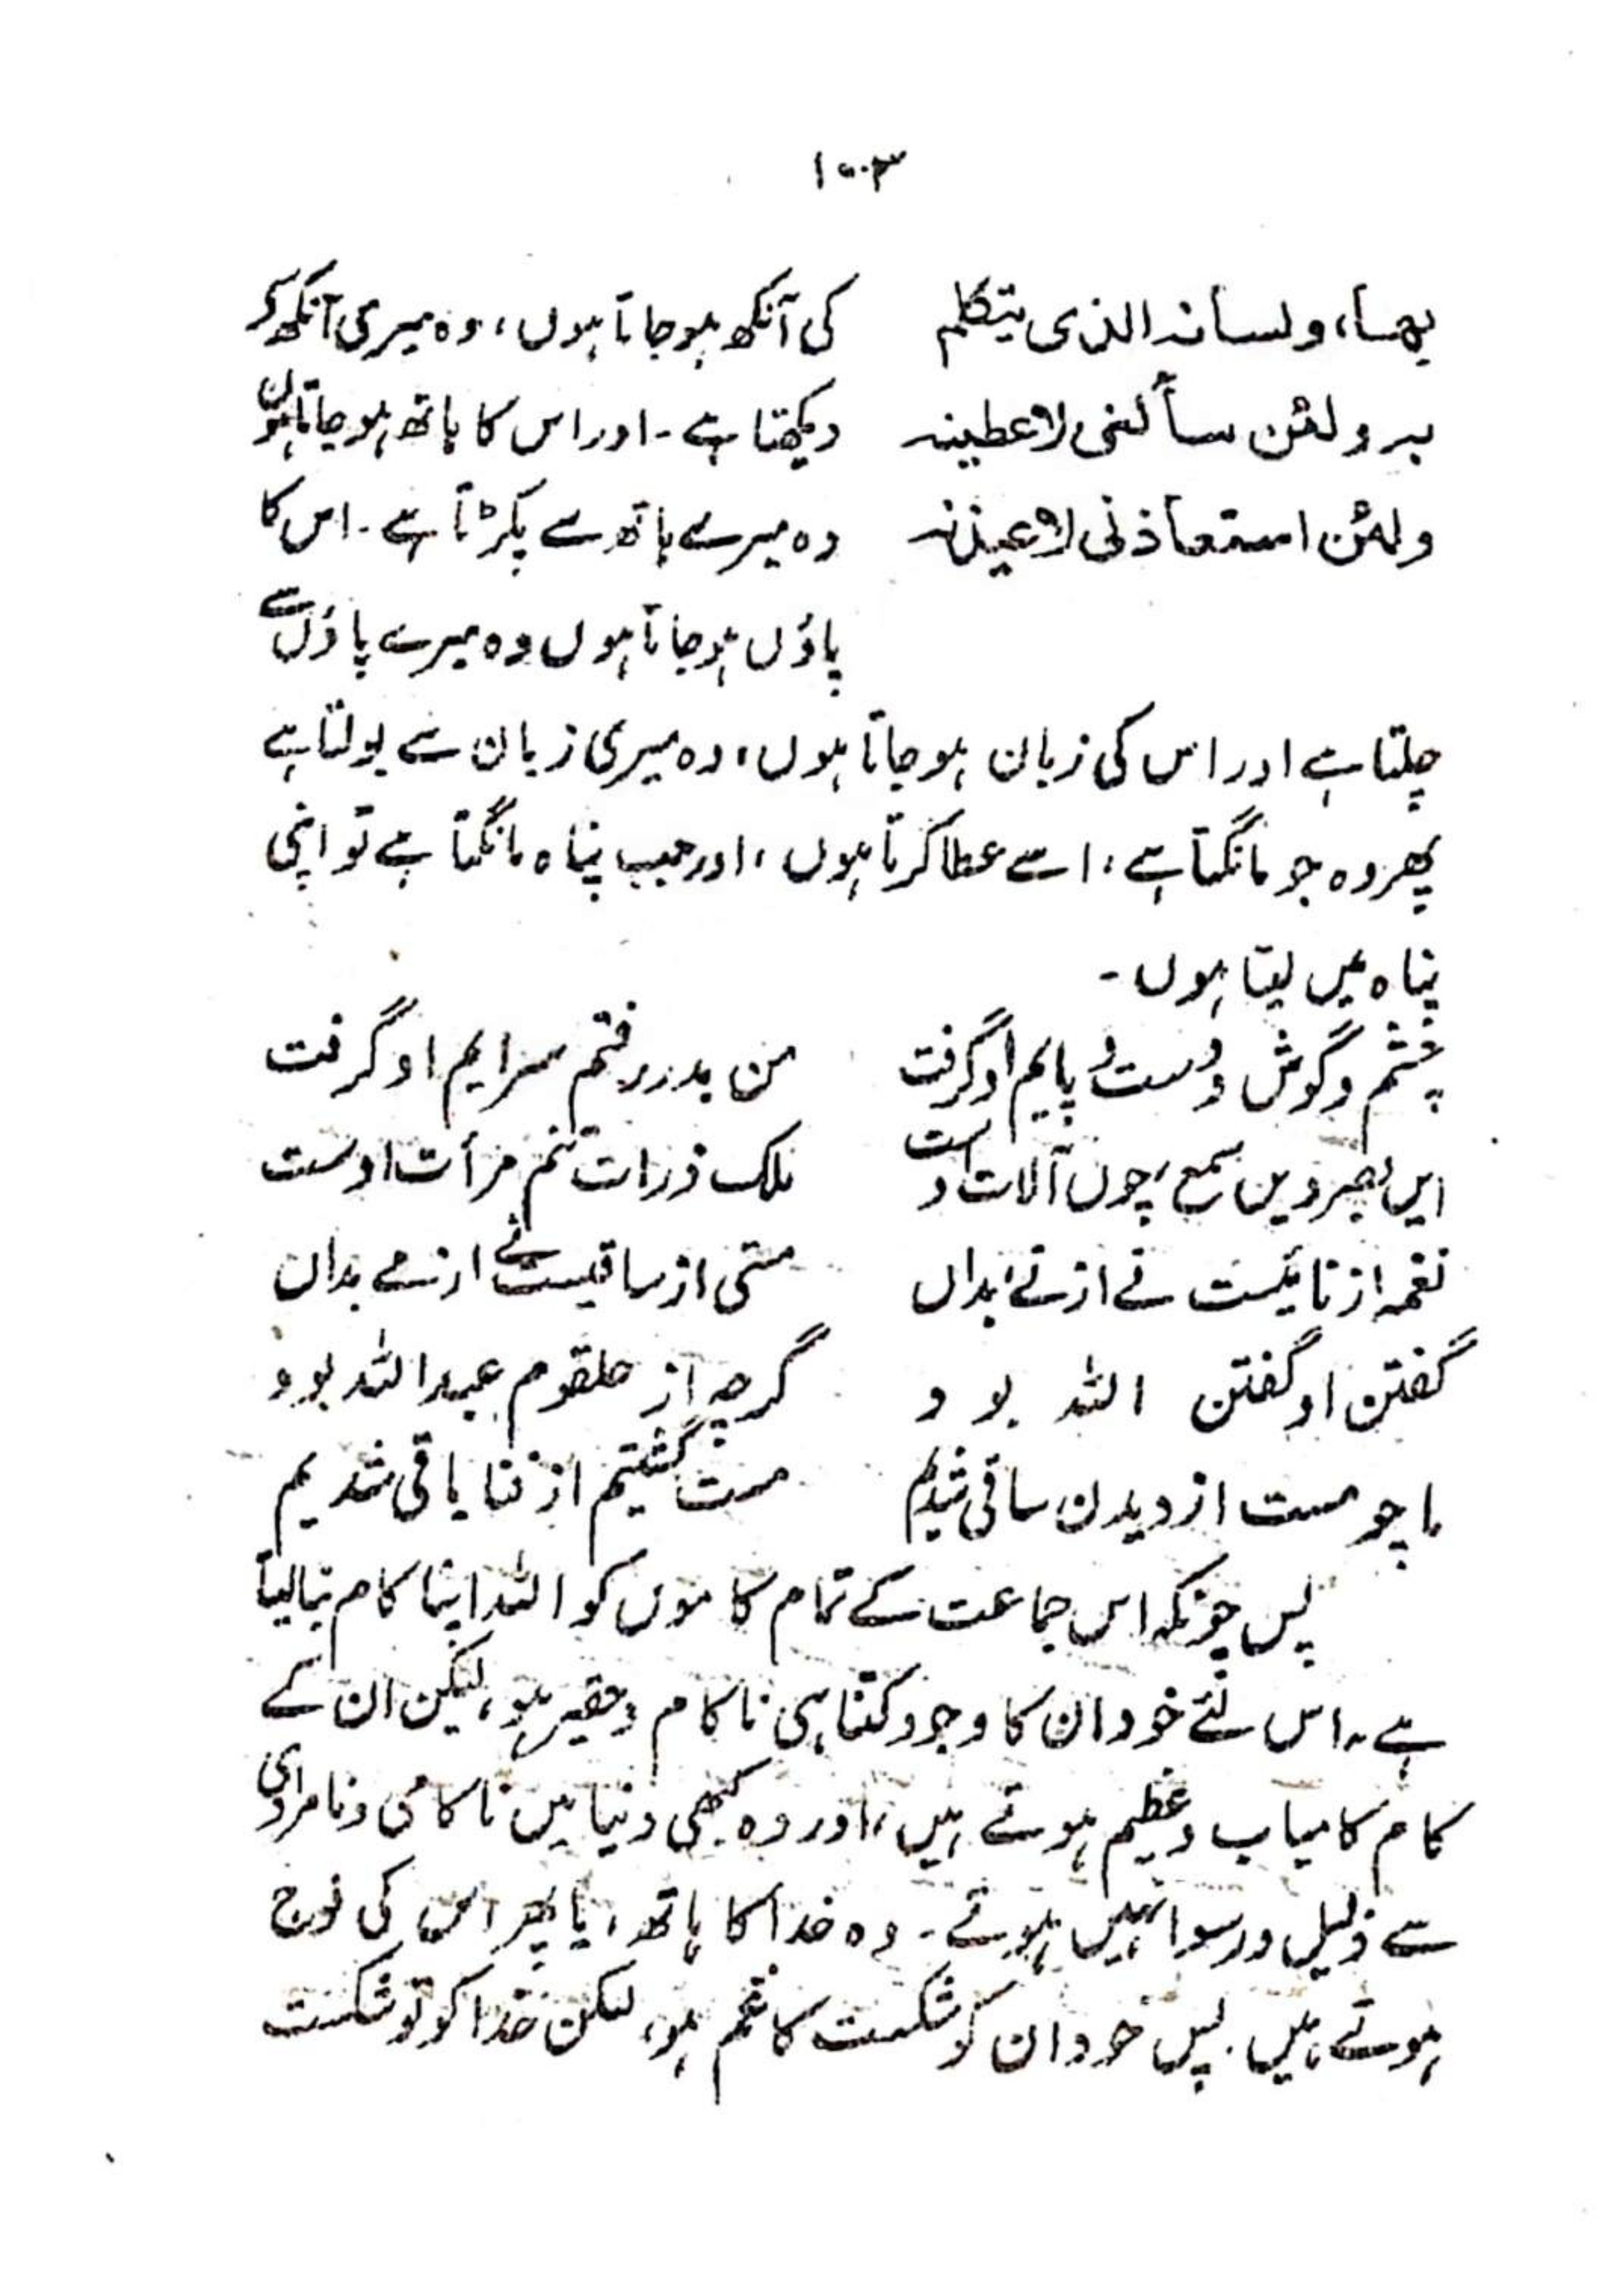 ۱۰۰۳
بھا، ولسانہ الذی یتکلم کی آنکھ ہو جاتا ہوں، وہ میری آنکھ سے
بہ ولئن سألنی لاعطینہ دیکھتا ہے۔ اور اس کا ہاتھ ہو جاتا ہوں
ولئن استعاذنی لاعیذنہ وہ میرے ہاتھ سے پکڑتا ہے۔ اس کا
پاؤں ہو جاتا ہوں وہ میرے پاؤں سے
چلتا ہے اور اس کی زبان ہو جاتا ہوں، وہ میری زبان سے بولتا ہے
پھر وہ جو مانگتا ہے، اسے عطا کرتا ہوں، اور جب پناہ مانگتا ہے تو اپنی
پناہ میں لیتا ہوں۔
چشم و گوش و دست و پایم او گرفت من بدر رفتم سرایم او گرفت
ایں بصر ویں سمع، چوں آلات اوست ملک ذرات تنم مرأت اوست
نغمہ از نائیست نے از نے بداں مستی از ساقیست نے از مے بداں
گفتن او گفتن اللہ بود گرچہ از حلقوم عبداللہ بود
ما چو مست از دیدن ساقی شدیم مست گشتیم از فنا باقی شدیم
پس چونکہ اس جماعت کے تمام کاموں کو اللہ اپنا کام بنا لیتا
ہے، اس لئے خود ان کا وجود کتنا ہی ناکام و حقیر ہو، لیکن ان کے
کام کامیاب و عظیم ہوتے ہیں، اور وہ کبھی دنیا میں ناکامی و نامرادی
سے ذلیل و رسوا نہیں ہوتے۔ وہ خدا کا ہاتھ، یا پھر اس کی فوج
ہوتے ہیں۔ پس خود ان کو شکست کا غم ہو، لیکن خدا کو تو شکست